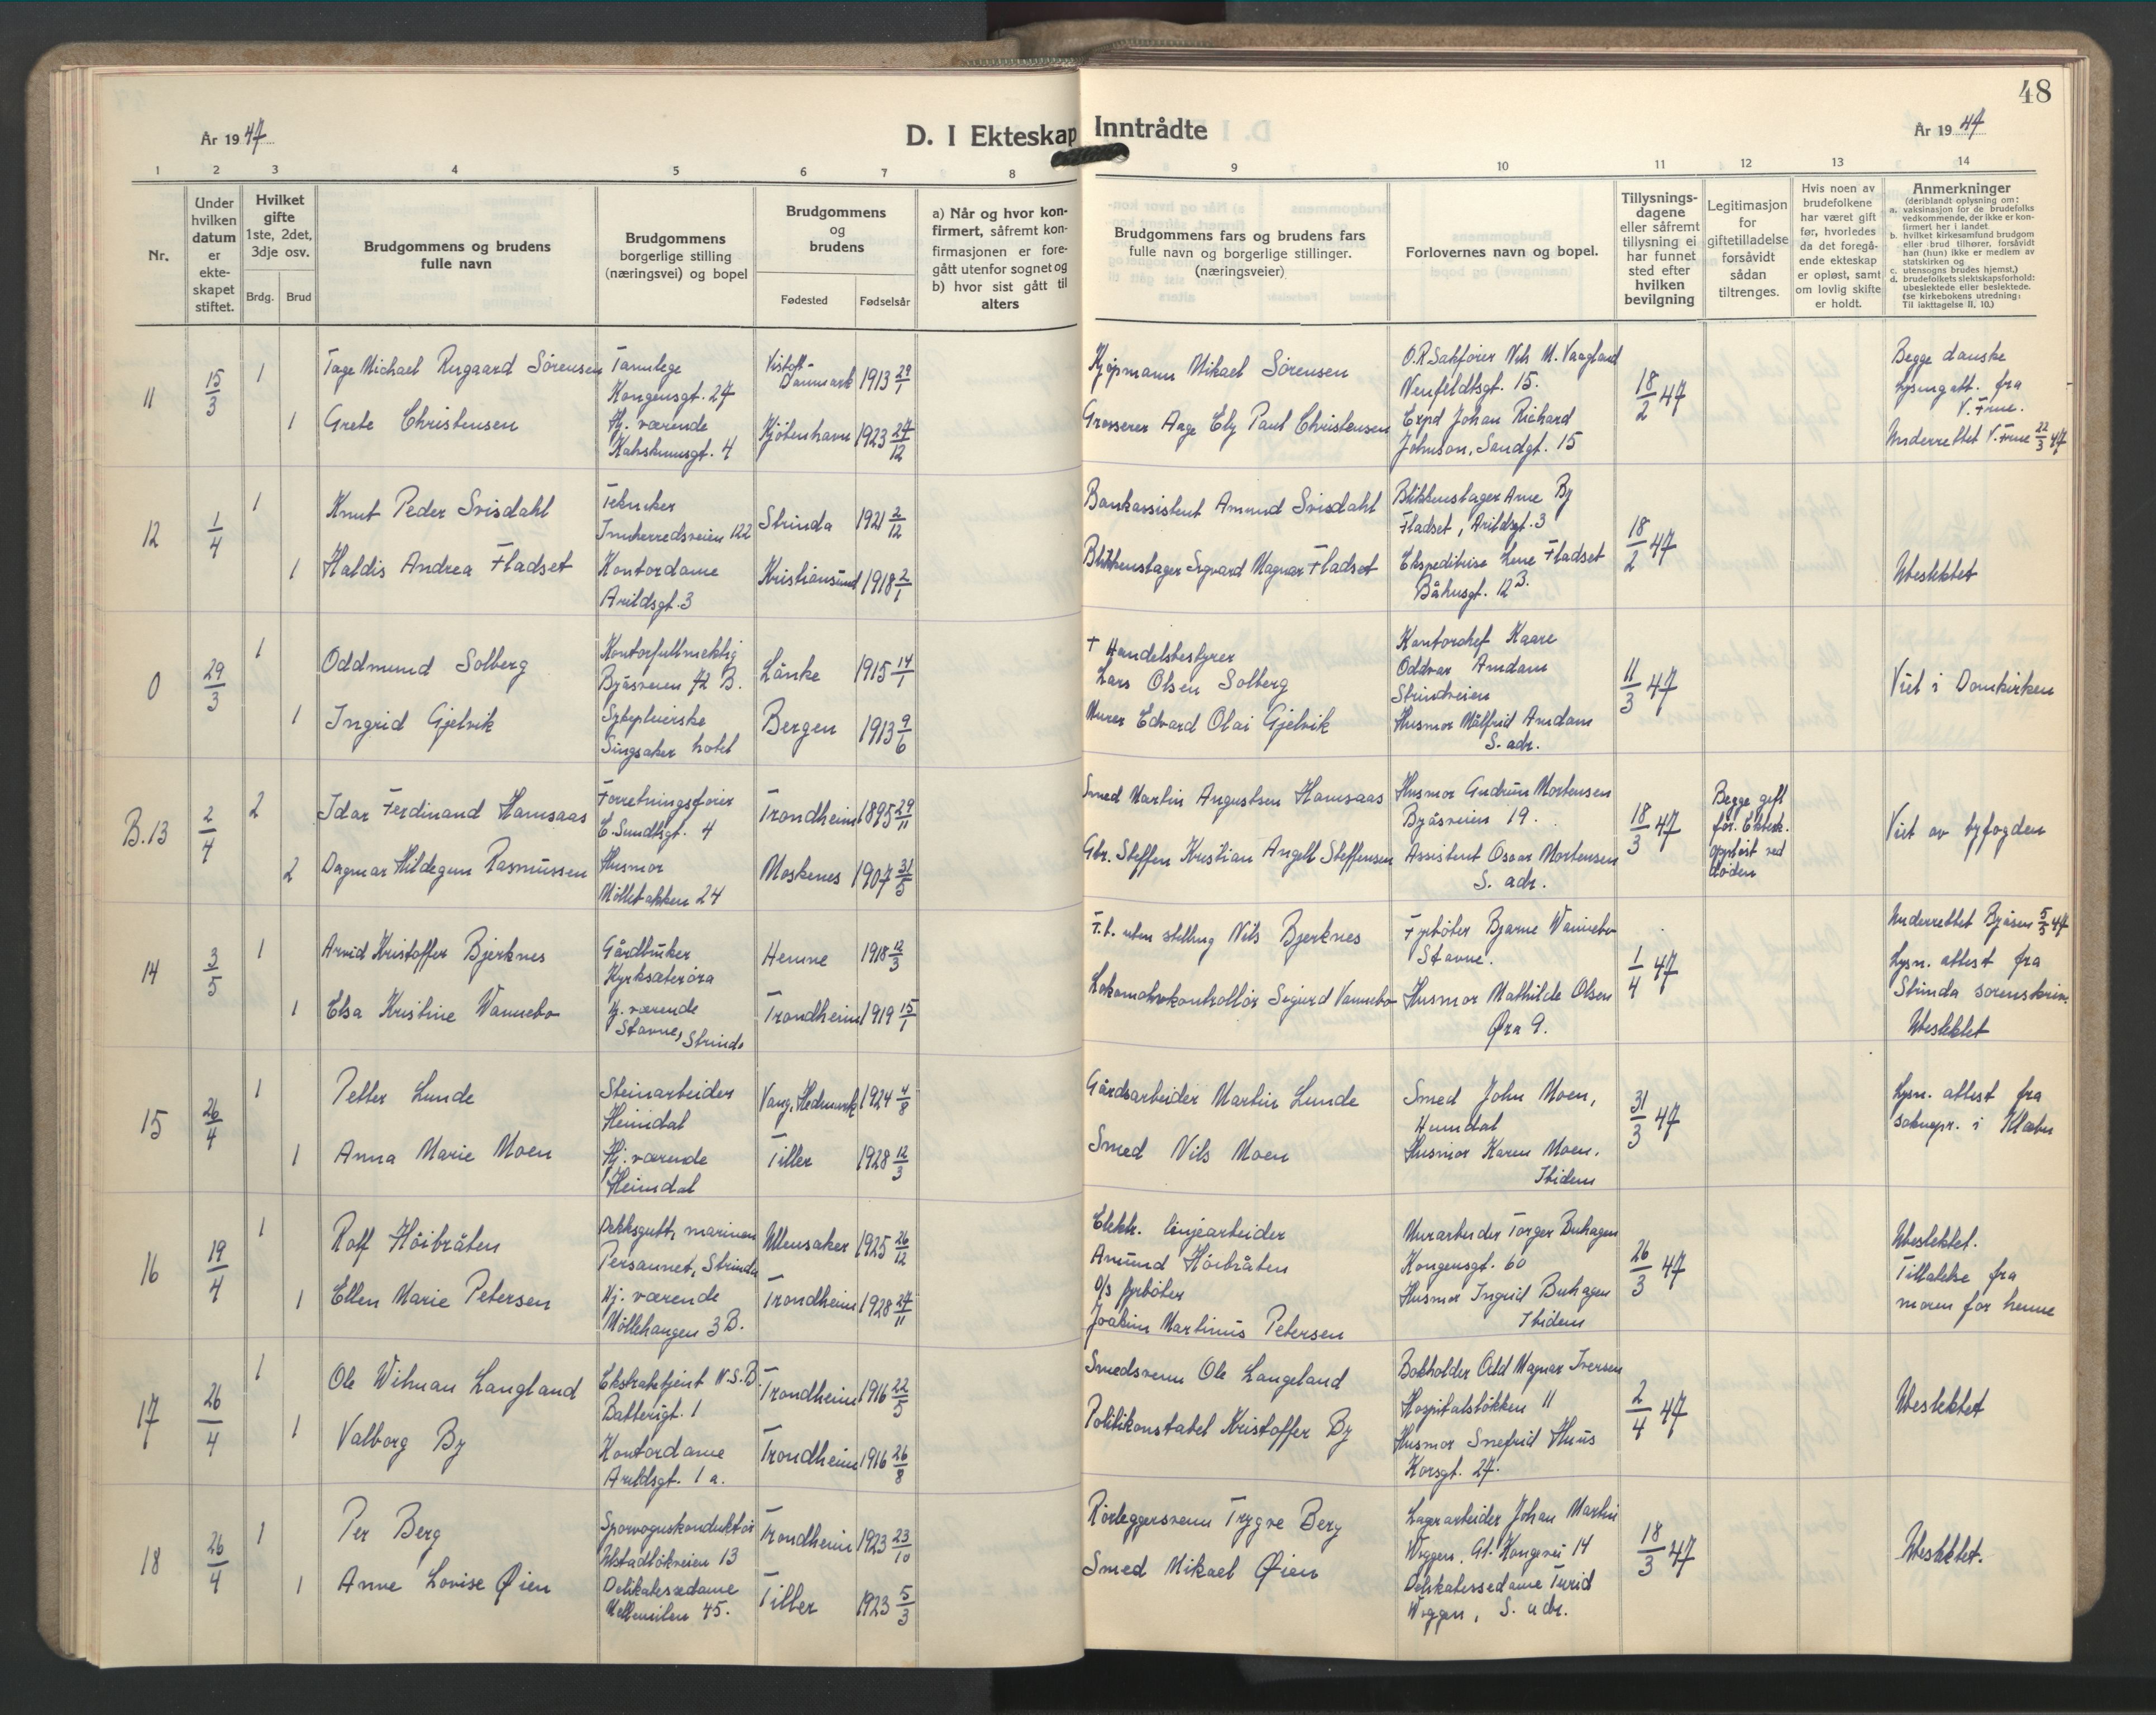 48
År 1947
D. I Ekteskap Inntrådte
År 1947
1 2 3 4 5 6 7 8 9 10 11 12 13 14
Nr.
Under hvilken datum er ekteskapet stiftet.
Hvilket gifte 1ste, 2det, 3dje osv.
Brdg. Brud
Brudgommens og brudens fulle navn
Brudgommens borgerlige stilling (næringsvei) og bopel
Brudgommens og brudens
Fødested Fødselsår
a) Når og hvor konfirmert, såfremt konfirmasjonen er foregått utenfor sognet og
b) hvor sist gått til alters
Brudgommens fars og brudens fars fulle navn og borgerlige stillinger. (næringsveier)
Forlovernes navn og bopel.
Tillysningsdagene eller såfremt tillysning ei har funnet sted efter hvilken bevilgning
Legitimasjon for giftetilladelse forsåvidt sådan tiltrenges.
Hvis noen av brudefolkene har været gift før, hvorledes da det foregående ekteskap er opløst, samt om lovlig skifte er holdt.
Anmerkninger
(deriblandt oplysning om:
a. vaksinasjon for de brudefolks vedkommende, der ikke er konfirmert her i landet
b. hvilket kirkesamfund brudgom eller brud tilhører, forsåvidt han (hun) ikke er medlem av statskirken og
c. utensogns brudes hjemst.)
d. brudefolkets slektskapsforhold: ubeslektede eller beslektede.
(se kirkebokens utredning: Til iakttagelse II, 10.)
11 15/3
1 Tage Michael Rugaard Sörensen
Tannlege
Kongensgt. 27
Danmark 1913 29/1
Kjöpmann Mikael Sörensen
O.R.Sakförer Nils M. Vaagland
Neufeldtsgt. 15.
18/2 47
Begge danske
Lysingatt. fra
V. Frue.
1 Grete Christensen
Hj. værende
Kjöbenhavn 1923 27/12
Grosserer Aage Ely Paul Christensen
Expd Johan Richard
Johnson, Sandgt. 15
Underrettet V. Frue 22/3 47
12 1/4
1 Knut Peder Svisdahl
Tekniker
Innherredsveien 122
Strinda 1921 2/12
Bankassistent Amund Svisdahl
Blikkenslager Arne By
Fladset, Arildsgt. 3
18/2 47
1 Haldis Andrea Fladset
Kontordame
Arildsgt. 3
Kristiansund 1918 2/1
Blikkenslager Sigvard Magnar Fladset
Ekspeditrise Lene Fladset
Båhusgt. 12
Ubeslektet
0 29/3
1 Oddmund Solberg
Kontorfullmektig
Byåsveien 72 B.
Lånke 1915 14/1
† Handelsbestyrer
Lars Olsen Solberg
Kontorchef Kaare
Oddvar Amdam
Strindveien
11/3 47
Viet i Domkirken
1 Ingrid Gjelvik
Sykepleierske
Singsaker hotel
Bergen 1913 9/6
Murer Edvard Olai Gjelvik
Husmor Målfrid Amdam
S. adr.
B.13 2/4
2 Idar Ferdinand Hamsaas
Forretningsförer
E. Sundtsgt. 4
Trondheim 1895 29/11
Smed Martin Angustsen Hamsaas
Husmor Gudrun Mortensen
Byåsveien 19.
18/3 47
Begge gift
för. Ektesk.
opplöst ved
döden
Viet av byfogden
2 Dagmar Hildegun Rasmussen
Husmor
Möllebakken 24
Moskenes 1907 31/5
Gbr. Steffen Kristian Angell Steffensen
Assistent Oscar Mortensen
S. adr.
14 3/5
1 Arvid Kristoffer Bjerknes
Gårdbruker
Kyrksæteröra
Hemne 1918 12/3
F.t. uten stilling Nils Bjerknes
Fyrböter Bjarne Wannebo
Stavne.
1/4 47
Underrettet Byåsen 5/5 47
Lysn. attest fra
Strinda sorenskriv.
Ubeslektet
1 Elsa Kristine Wannebo
Hj. værende
Stavne, Strinda
Trondheim 1919 15/1
Lokomotivkontrollör Sigurd Vannebo
Husmor Mathilde Olsen
Øra 9.
15 26/4
1 Petter Lunde
Steinarbeider
Heimdal
Vang, Hedmark 1924 4/8
Gårdsarbeider Martin Lunde
Smed John Moen,
Heimdal
31/3 47
Lysn. attest fra
soknepr. i Klæbu
1 Anna Marie Moen
Hj. værende
Heimdal
Tiller 1928 12/3
Smed Nils Moen
Husmor Karen Moen.
Ibidem
16 19/4
1 Rolf Höibråten
Dekksgutt, marinen
Persaunet, Strinda
Ullensaker 1925 26/12
Elektr. linjearbeider
Amund Höibråten
Murarbeider Torger Buhagen
Kongensgt. 60
26/3 47
Ubeslektet.
Tillatelse fra
moren for henne
1 Ellen Marie Petersen
Hj. værende
Möllehaugen 3 B.
Trondheim 1928 27/11
o/s fyrböter
Joakim Martinus Petersen
Husmor Ingrid Buhagen
Ibidem
17 26/4
1 Ole Wilman Langland
Ekstrabetjent N.S.B.
Batterigt. 1
Trondheim 1916 22/5
Smedsvenn Ole Langeland
Bokholder Odd Magnar Iversen
Hospitalslökken 11
2/4 47
Ubeslektet
1 Valborg By
Kontordame
Arildsgt. 1 a.
Trondheim 1916 26/8
Politikonstabel Kristoffer By
Husmor Snefrid Huus
Korsgt. 27.
18 26/4
1 Per Berg
Sporvognskonduktör
Ulstadlökveien 13
Trondheim 1923 23/10
Rörleggersvenn Trygve Berg
Lagerarbeider Johan Martin
Wiggen, Gl. Kongevei 14
18/3 47
Ubeslektet.
1 Anne Lovise Øien
Delikatessedame
45.
Tiller 1923 5/3
Smed Mikael Øien
Delikatessedame Turid
Wiggen, S. adr.